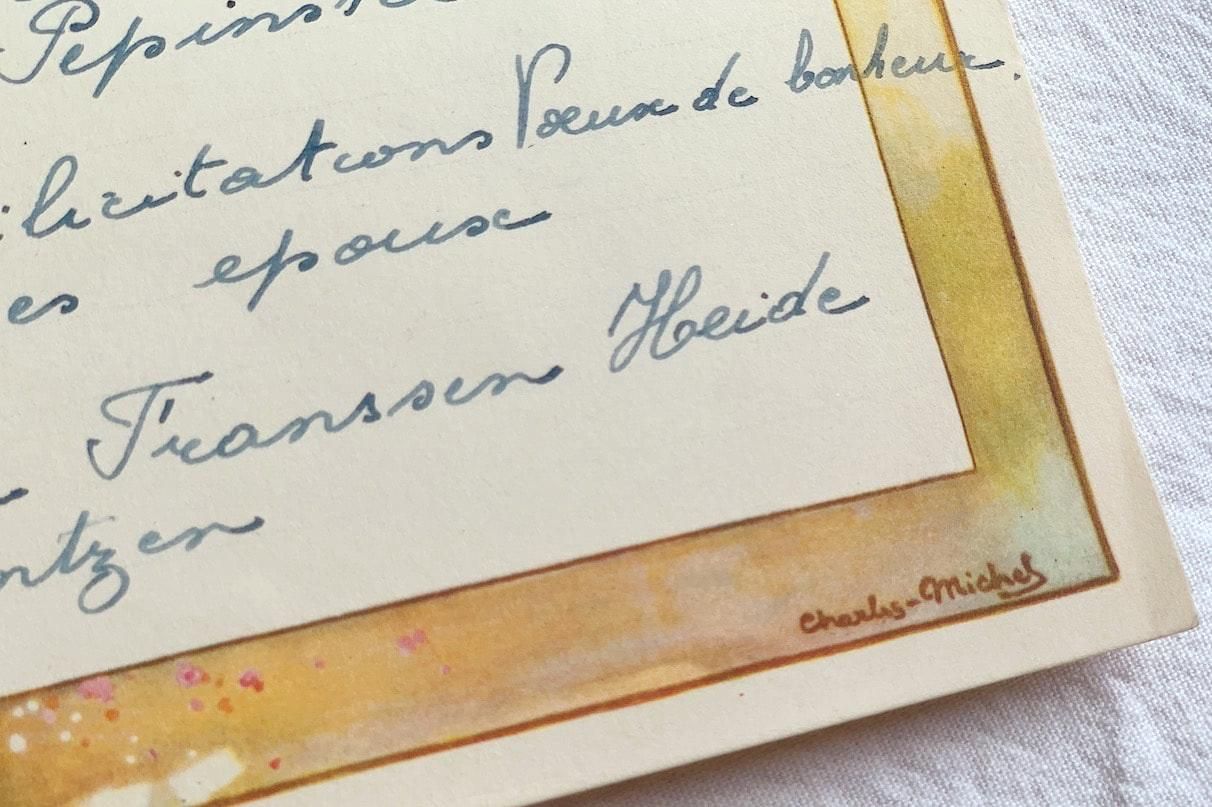 Pepinst
ilicitations Voeux de bonheur.
es epoux
Franssen Heide
ntzen
Charles-Michel